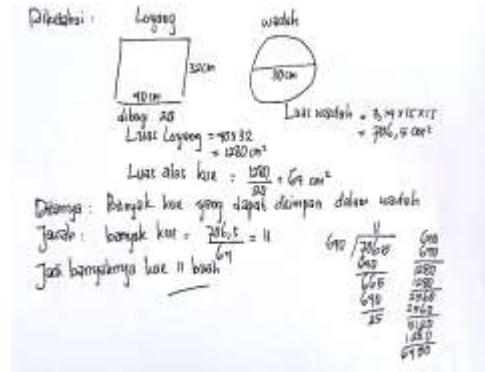 Diketahui : Loyang wadah
32cm
40 cm
30cm
dibagi 20
Luas Loyang = 40x32
= 1280 cm²
Luas wadah = 3,14 x 15 x 15
= 706,5 cm²
Luas alas kue = 1280/20 = 64 cm²
Ditanya : Banyak kue yang dapat disimpan dalam wadah
Jawab : banyak kue = 706,5/64 = 11
Jadi banyaknya kue 11 buah
11
640
640
665
640
25
1280
1280
2560
2560
5120
1280